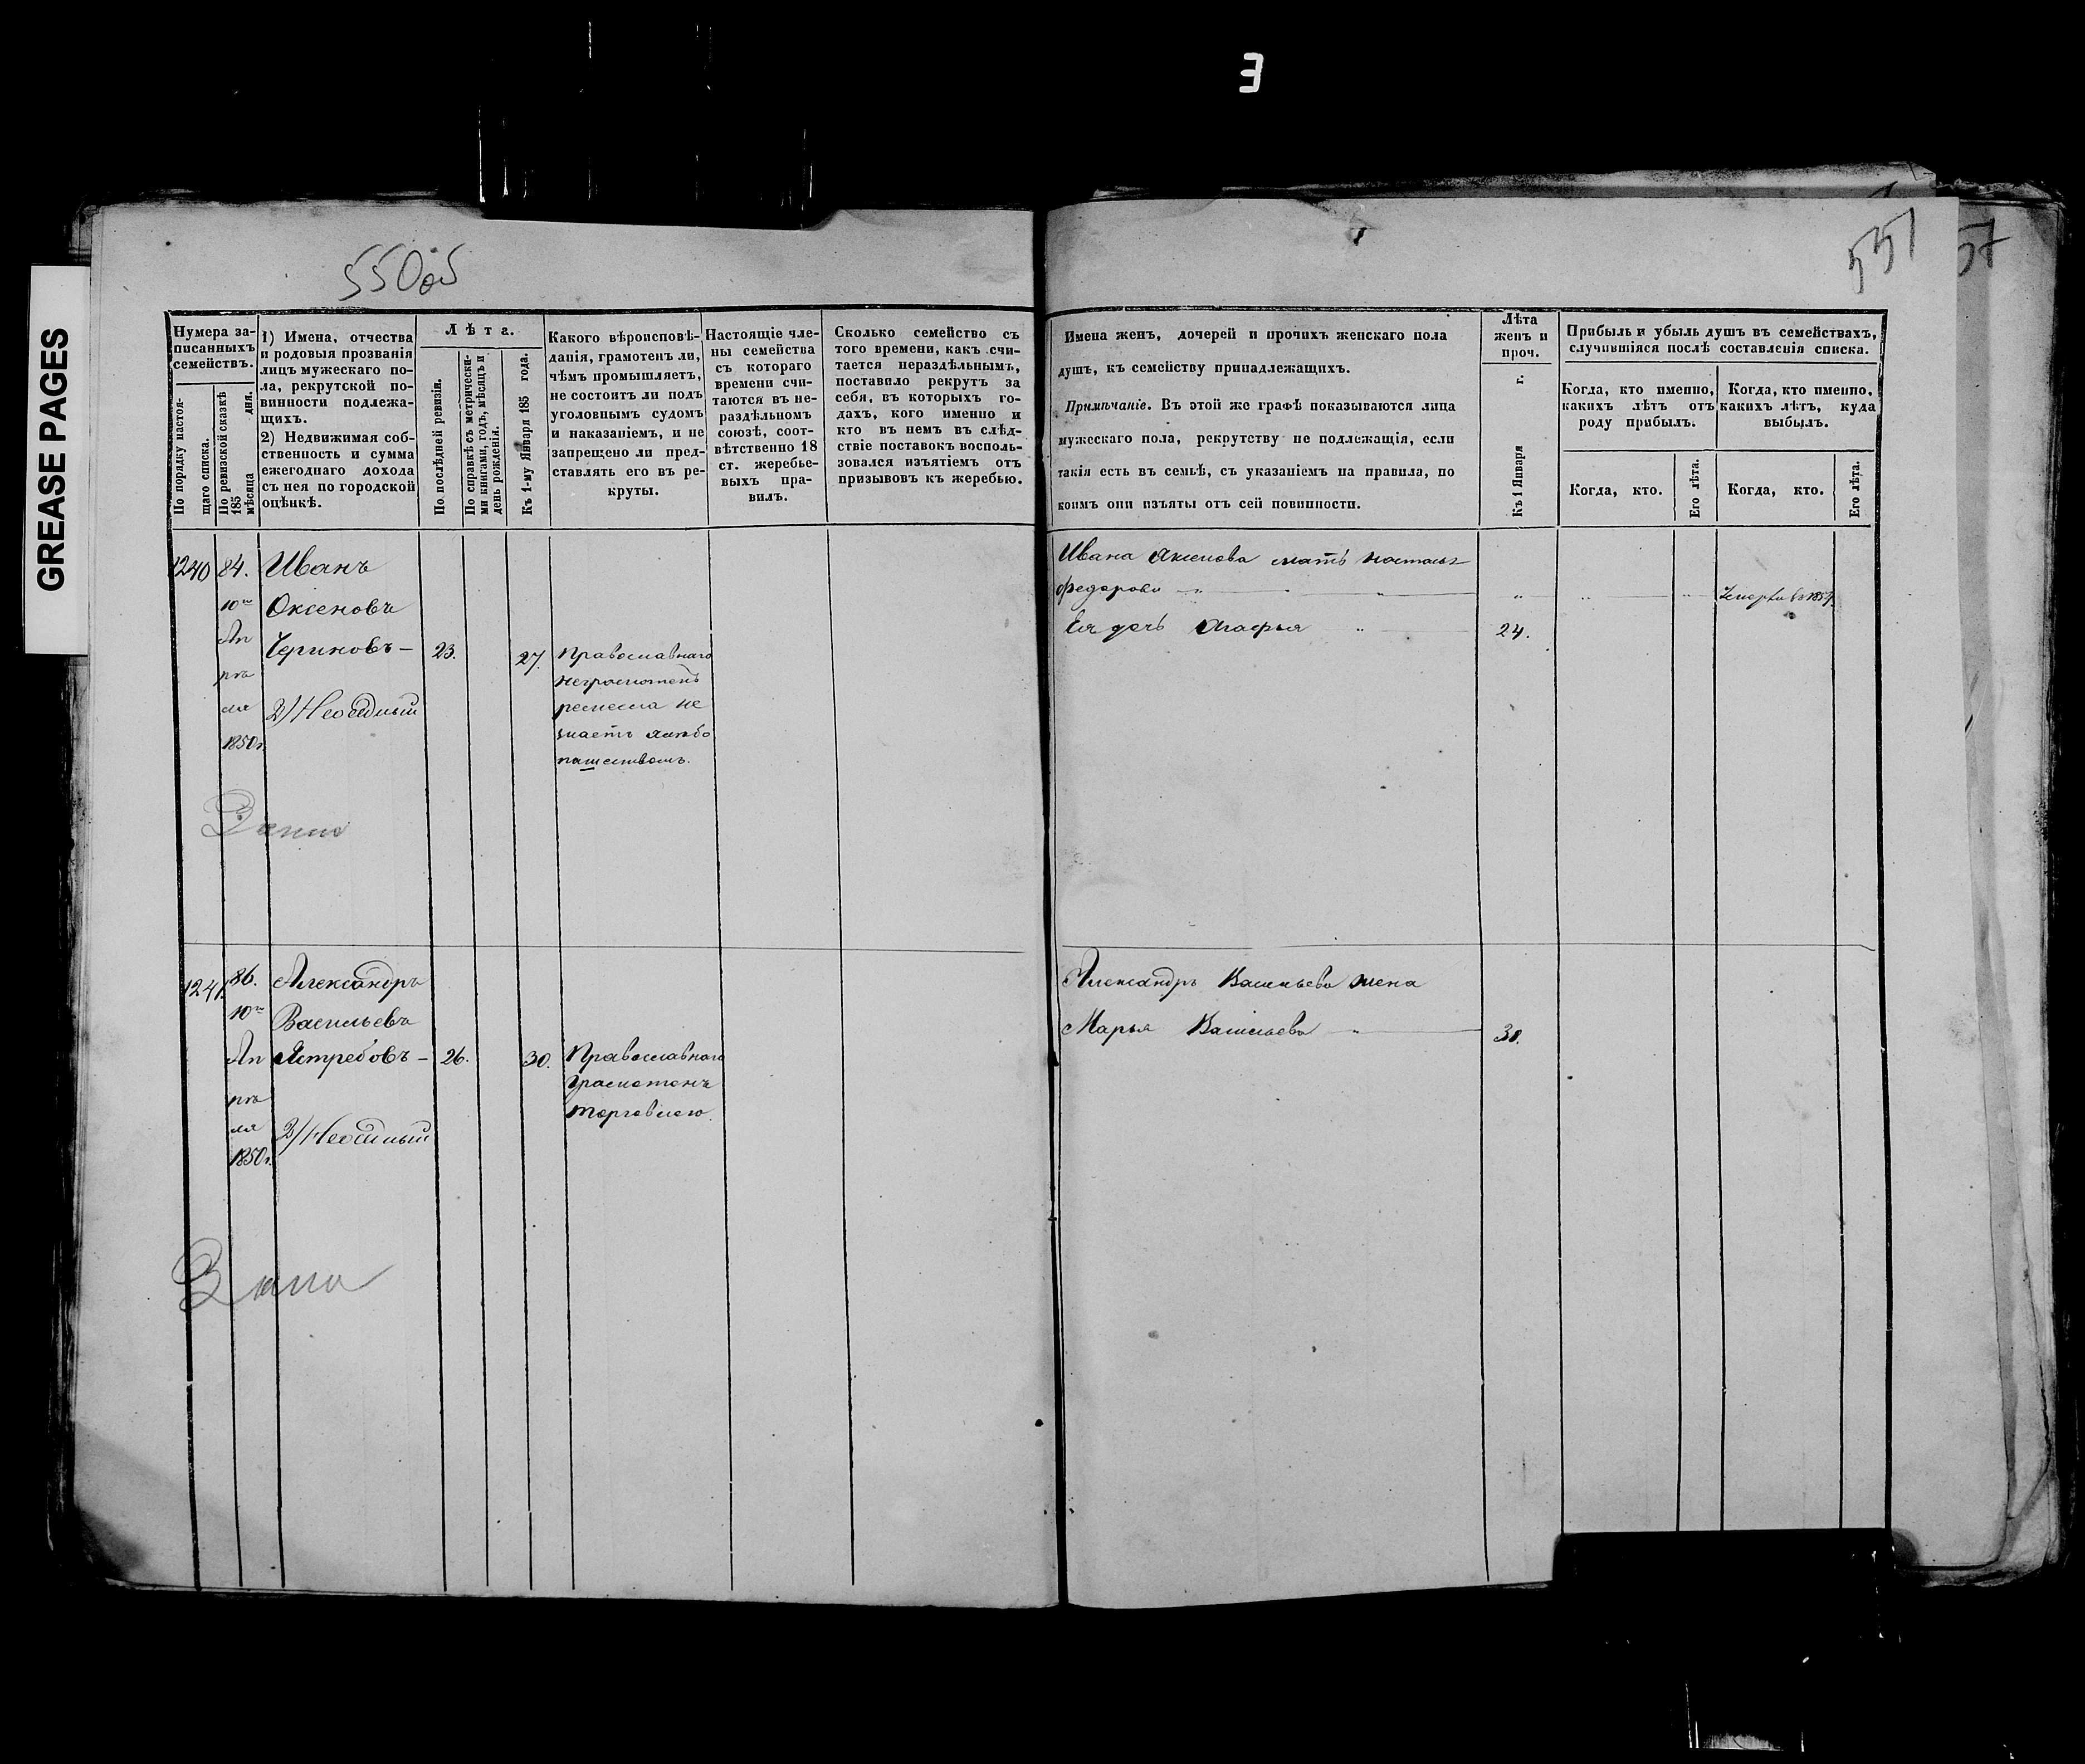 E
GREASE PAGES
550об
Нумера за-
писанныхъ
семействъ.
По порядку настоя-
щаго списка.
По ревизской сказкѣ
185 дня.
мѣсяца
1) Имена, отчества
и родовыя прозванія
лицъ мужескаго по-
ла, рекрутской по-
винности подлежа-
щихъ.
2) Недвижимая соб-
ственность и сумма
ежегоднаго дохода
съ нея по городской
оцѣнкѣ.
Лѣта.
По послѣдней ревизіи.
По справкѣ съ метрически-
ми книгами, годъ, мѣсяцъ и
день рожденія.
Къ 1-му Января 185 года.
Какого вѣроисповѣ-
данія, грамотенъ ли,
чѣмъ промышляетъ,
не состоитъ ли подъ
уголовнымъ судомъ
и наказаніемъ, и не
запрещено ли пред-
ставлять его въ ре-
круты.
Настоящіе чле-
ны семейства
съ котораго
времени счи-
таются въ не-
раздѣльномъ
союзѣ, соот-
вѣтственно 18
ст. жеребье-
выхъ пра-
вилъ.
Сколько семейство съ
того времени, какъ счи-
тается нераздѣльнымъ,
поставило рекрутъ за
себя, въ которыхъ го-
дахъ, кого именно и
кто въ немъ въ слѣд-
ствіе поставокъ восполь-
зовался изъятіемъ отъ
призывовъ къ жеребью.
1240
84.
10го
Ап
рѣ
ля
1850г.
Иванъ
Оксеновъ
Чериковъ —
2) Неосѣдлый
23.
27.
Православнаго
неграмотенъ
ремесла не
знаетъ хлѣбо
пашествомъ.
1241.
86.
10го
Ап
рѣ
ля
1850г.
Александръ
Васильевъ
Ястребовъ —
2) Неосѣдлый
26.
30.
Православнаго
Грамотенъ
торговлею.
551
57
Имена женъ, дочерей и прочихъ женскаго пола
душъ, къ семейству принадлежащихъ.
Примѣчаніе. Въ этой же графѣ показываются лица
мужескаго пола, рекрутству не подлежащія, если
такія есть въ семьѣ, съ указаніемъ на правила, по
коимъ они изъяты отъ сей повинности.
Лѣта
женъ и
проч.
Къ 1 Января г.
Прибыль и убыль душъ въ семействахъ,
случившіяся послѣ составленія списка.
Когда, кто именно,
какихъ лѣтъ отъ
роду прибылъ.
Когда, кто именно,
какихъ лѣтъ, куда
выбылъ.
Когда, кто.
Его лѣта.
Когда, кто.
Его лѣта.
Ивана Аксенова мать
федорова
Ея дочь Агафья
24.
Александръ Васильева жена
Марья Васильева
30.